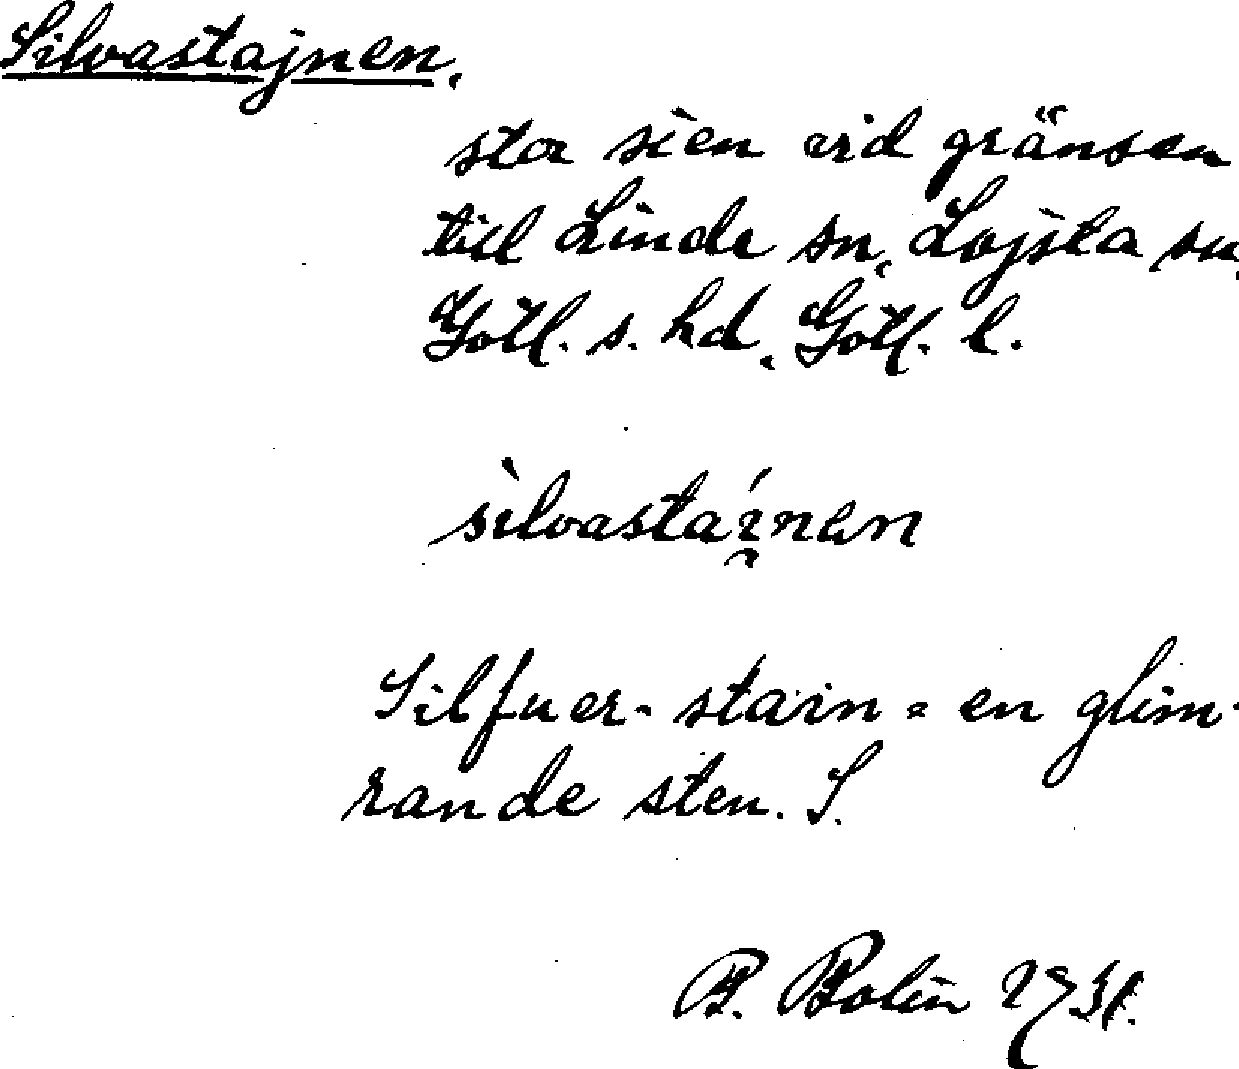 Silvastajnen.
sto sten vid gränsen
till Linde sn, Lojsta sn,
Gotl. s. hd, Gotl. l.
silvastáinen
Silfuer-stain = en glim-
rande sten. S.
B. Bolin 1931.